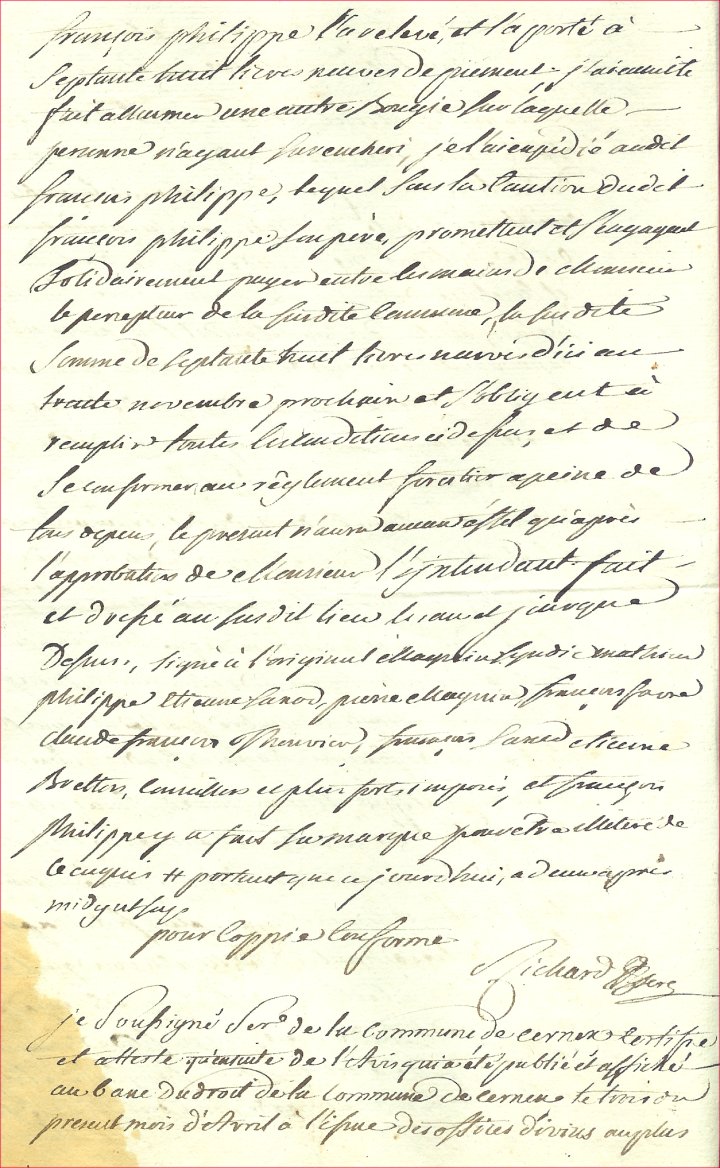 françois philippe l'a relevé, et l'a porté à
Septante huit livres neuves de piemont j'ai ensuite
fait allumer une autre Bougie sur laquelle
personne n'ayant surencheri, je l'ai expédié audit
françois philippe, lequel sous la Caution dudit
françois philippe son père, promettent et s'engagent
Solidairement payer entre les mains de Monsieur
le percepteur de la susdite Commune, la susdite
Somme de septante huit livres neuves d'ici au
trente novembre prochain et s'obligent à
remplir toutes les conditions ci dessus, et de
Se conformer au règlement forestier a peine de
tous depens, le present n'aura aucun éffet qu'après
l'approbation de Monsieur l'Jntendant fait
et dressé au susdit lieu les an et jour que
Dessus, signé à l'original Magnin Syndic mathieu
philippe Etienne Sanod, pierre Magnin, françois favre
claude françois, françois Sanod etienne
Conseillers et plus forts imposés, et françois
Philippe y a fait sa marque pour etre illiteré de
ce enquis # portant que ce jourd'hui, a deux après
midy
pour Coppie Conforme
Richard Secre
je Soussigné Secre de la Commune de Cernex Certifie
et atteste de l'Avis qui a été publié et affiché
au banc du droit de la Commune de Cernex le trois du
present mois d'Avril à l'issue des offices divins au plus